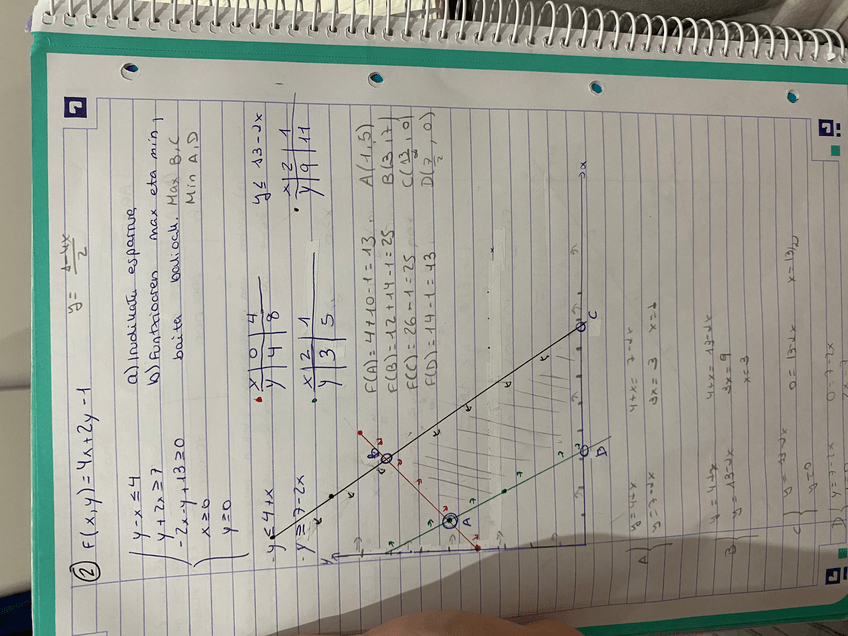 ② f(x,y)=4x+2y-1
y = 1-4x / 2
y-x≤4
y+2x≥7
-2x-y+13≥0
x≥0
y≥0
a) Irudikatu esparrua
b) Funtzioaren max eta min,
baita balioak. Max B,C
Min A,D
y≤4+x
x | 0 | 4
y | 4 | 8
y≤13-2x
x | 2 | 1
y | 9 | 11
y≥7-2x
x | 2 | 1
y | 3 | 5
f(A)=4+10-1=13 A(1,5)
f(B)=12+14-1=25 B(3,7)
f(C)=26-1=25 C(13/2,0)
f(D)=14-1=13 D(7/2,0)
y
B
A
C
D
x
A) y=4+x 4+x=7-2x
y=7-2x 3x=3 x=1
B) y=4+x 4+x=13-2x
y=13-2x 3x=9
x=3
C) y=13-2x 0=13-2x x=13/2
y=0
D) y=7-2x 0=7-2x